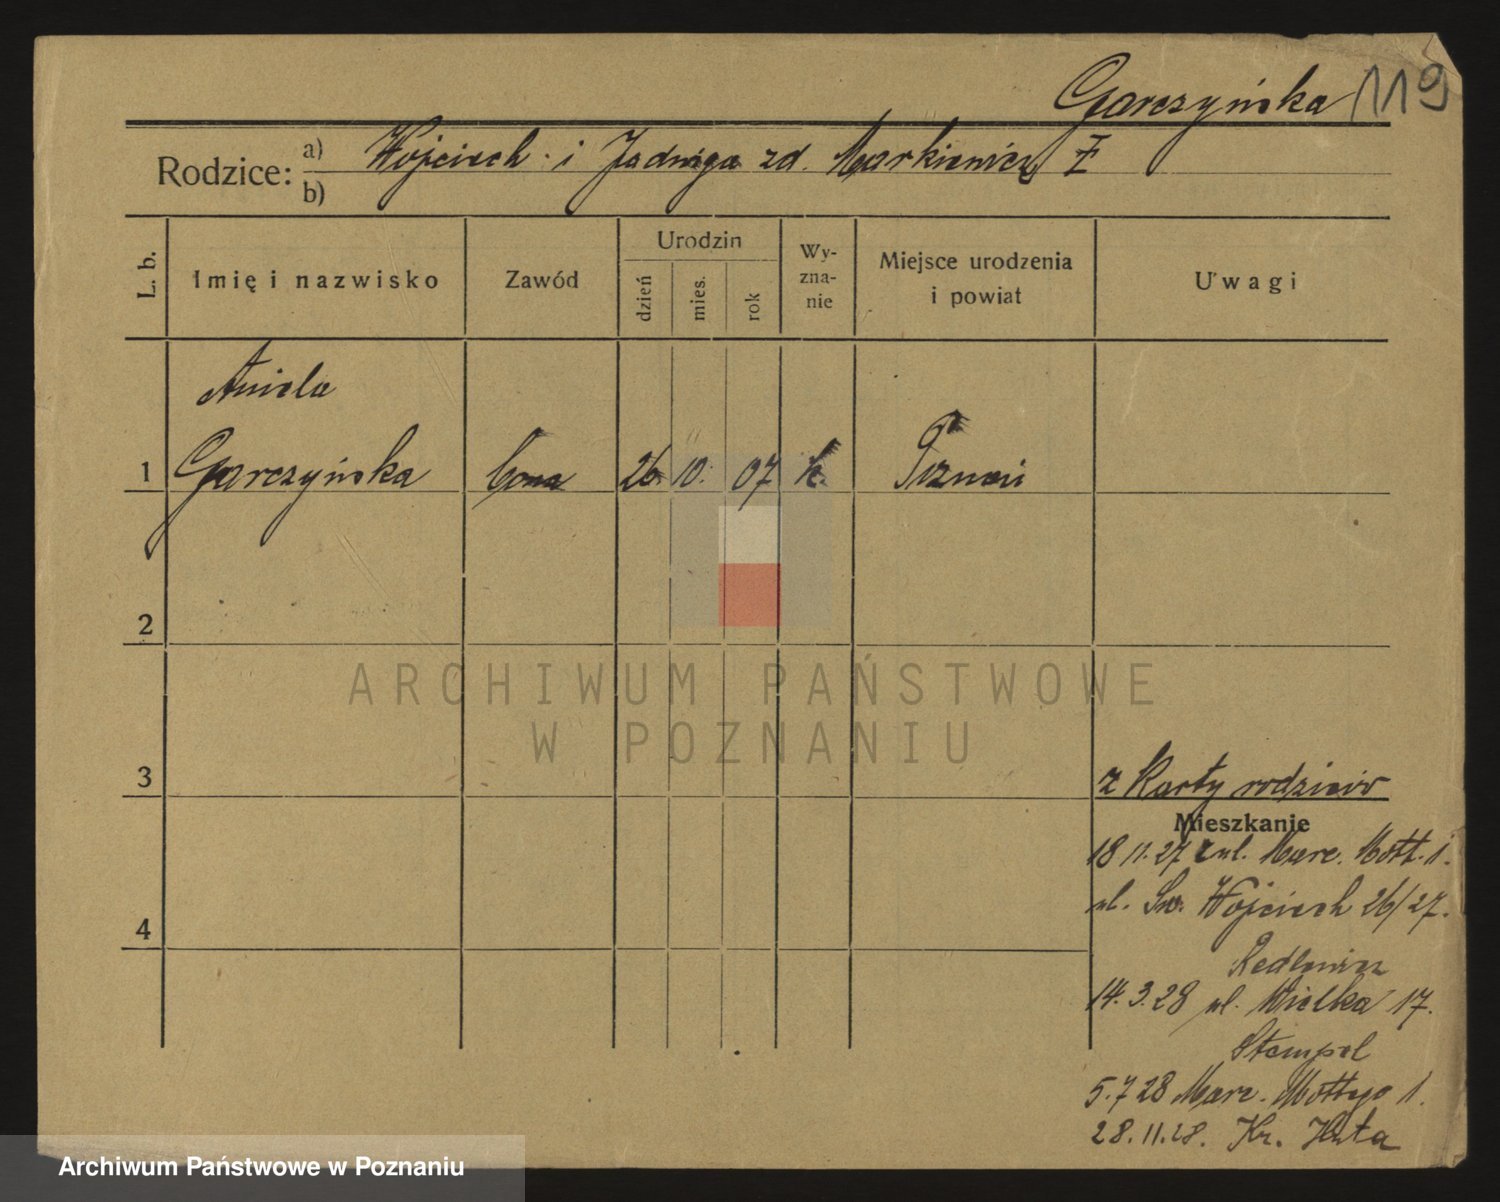 Garczyńska 119
Rodzice: a) Wojciech i Jadwiga zd. Markiewicz
b)
L. b.
Imię i nazwisko
Zawód
Urodzin
dzień
mies.
rok
Wy-
zna-
nie
Miejsce urodzenia
i powiat
Uwagi
Aniela
1 Garczyńska córka 26. 10. 07 k. Poznań
2
ARCHIWUM PAŃSTWOWE
W POZNANIU
3
z Karty rodziców
Mieszkanie
18 11.27 ul. Marc. Mott. 1.
ul. Św. Wojciech 26/27.
4
14.3.28 ul. Wielka 17.
Stempel
5.7 28 Marc. Mottego 1.
28.11.28. Kr. Huta
Archiwum Państwowe w Poznaniu